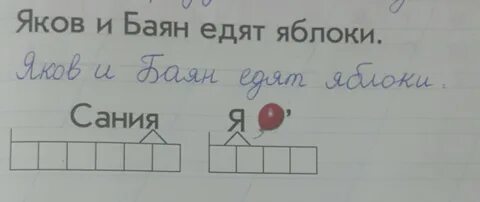 Яков и Баян едят яблоки.
Яков и Баян едят яблоки.
Сания Я '